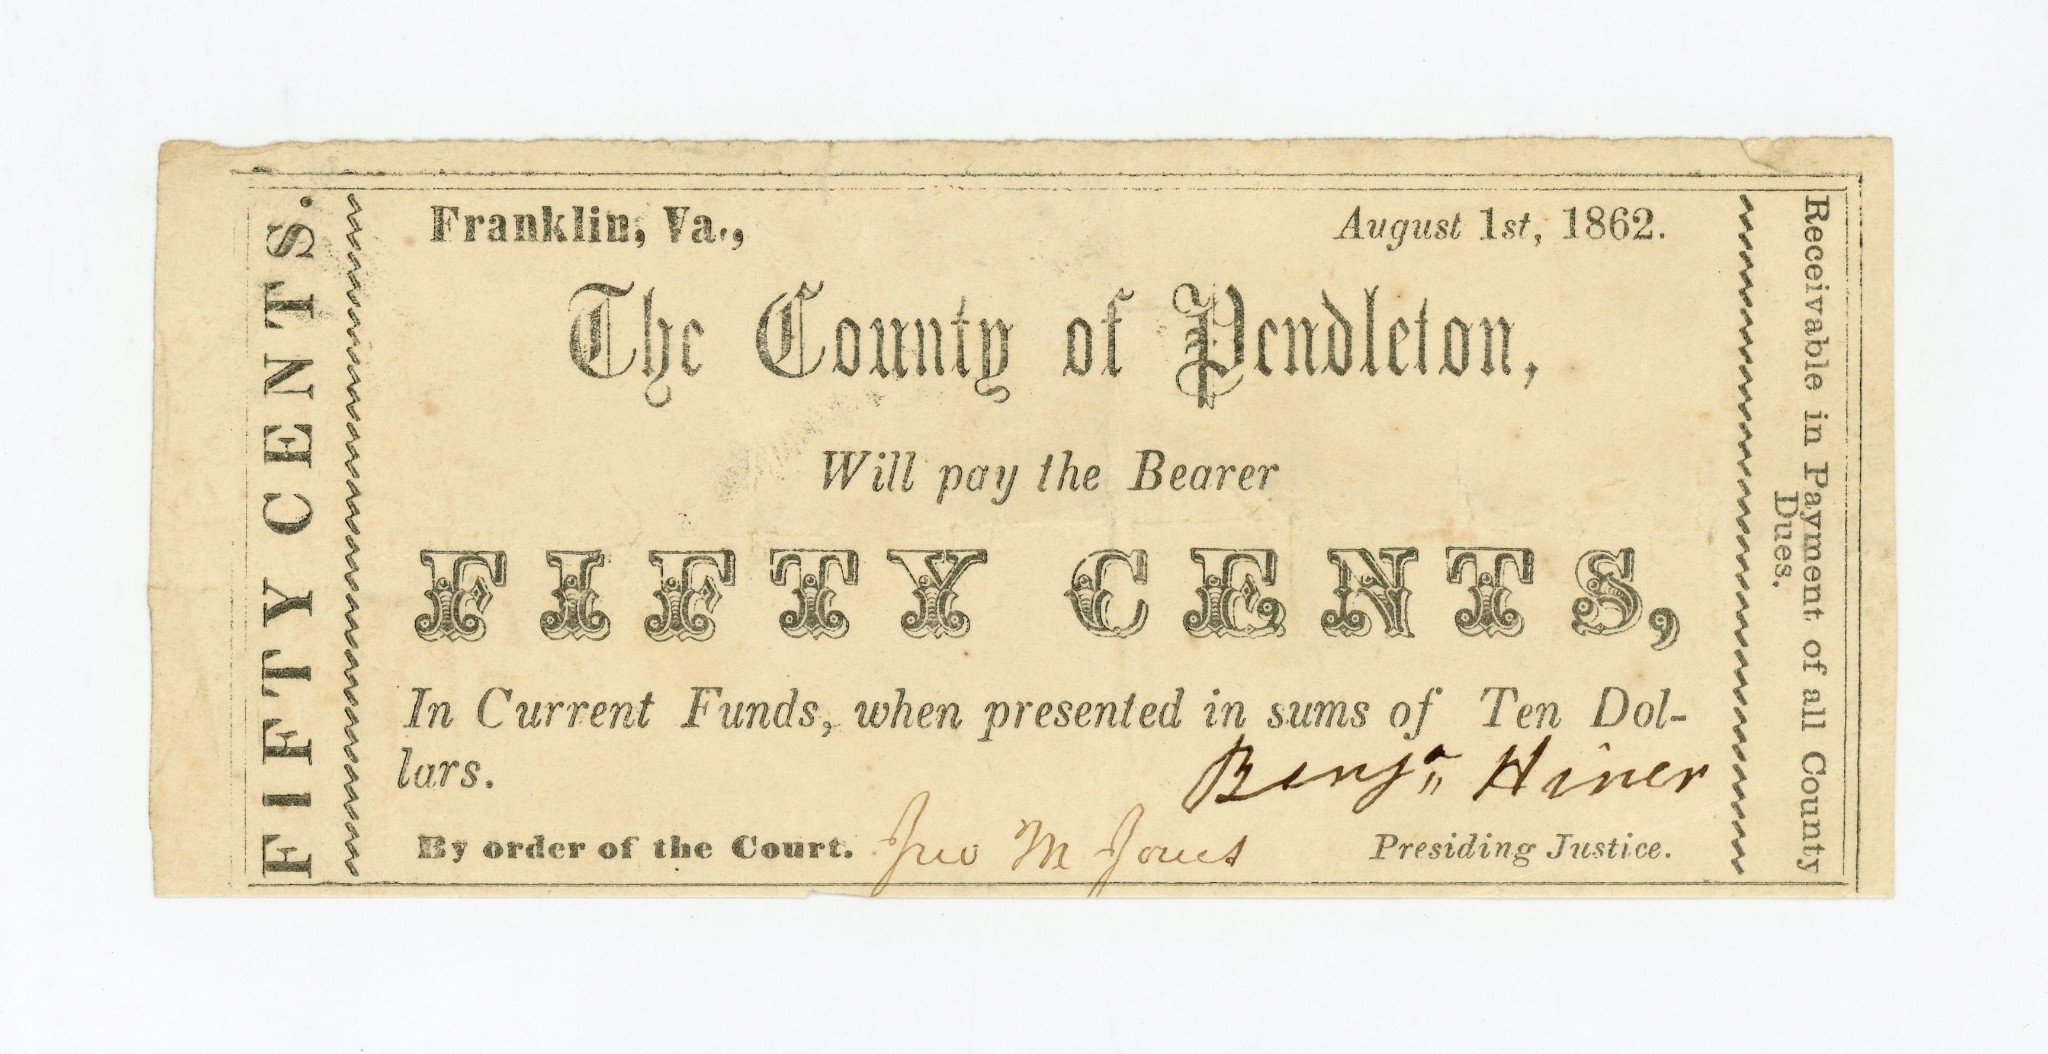 FIFTY CENTS.
Franklin, Va.,
August 1st, 1862.
The County of Pendleton,
Will pay the Bearer
FIFTY CENTS,
In Current Funds, when presented in sums of Ten Dol-
lars.
Benja Hiner
By order of the Court. Jno M Jones
Presiding Justice.
Receivable in Payment of all County
Dues.